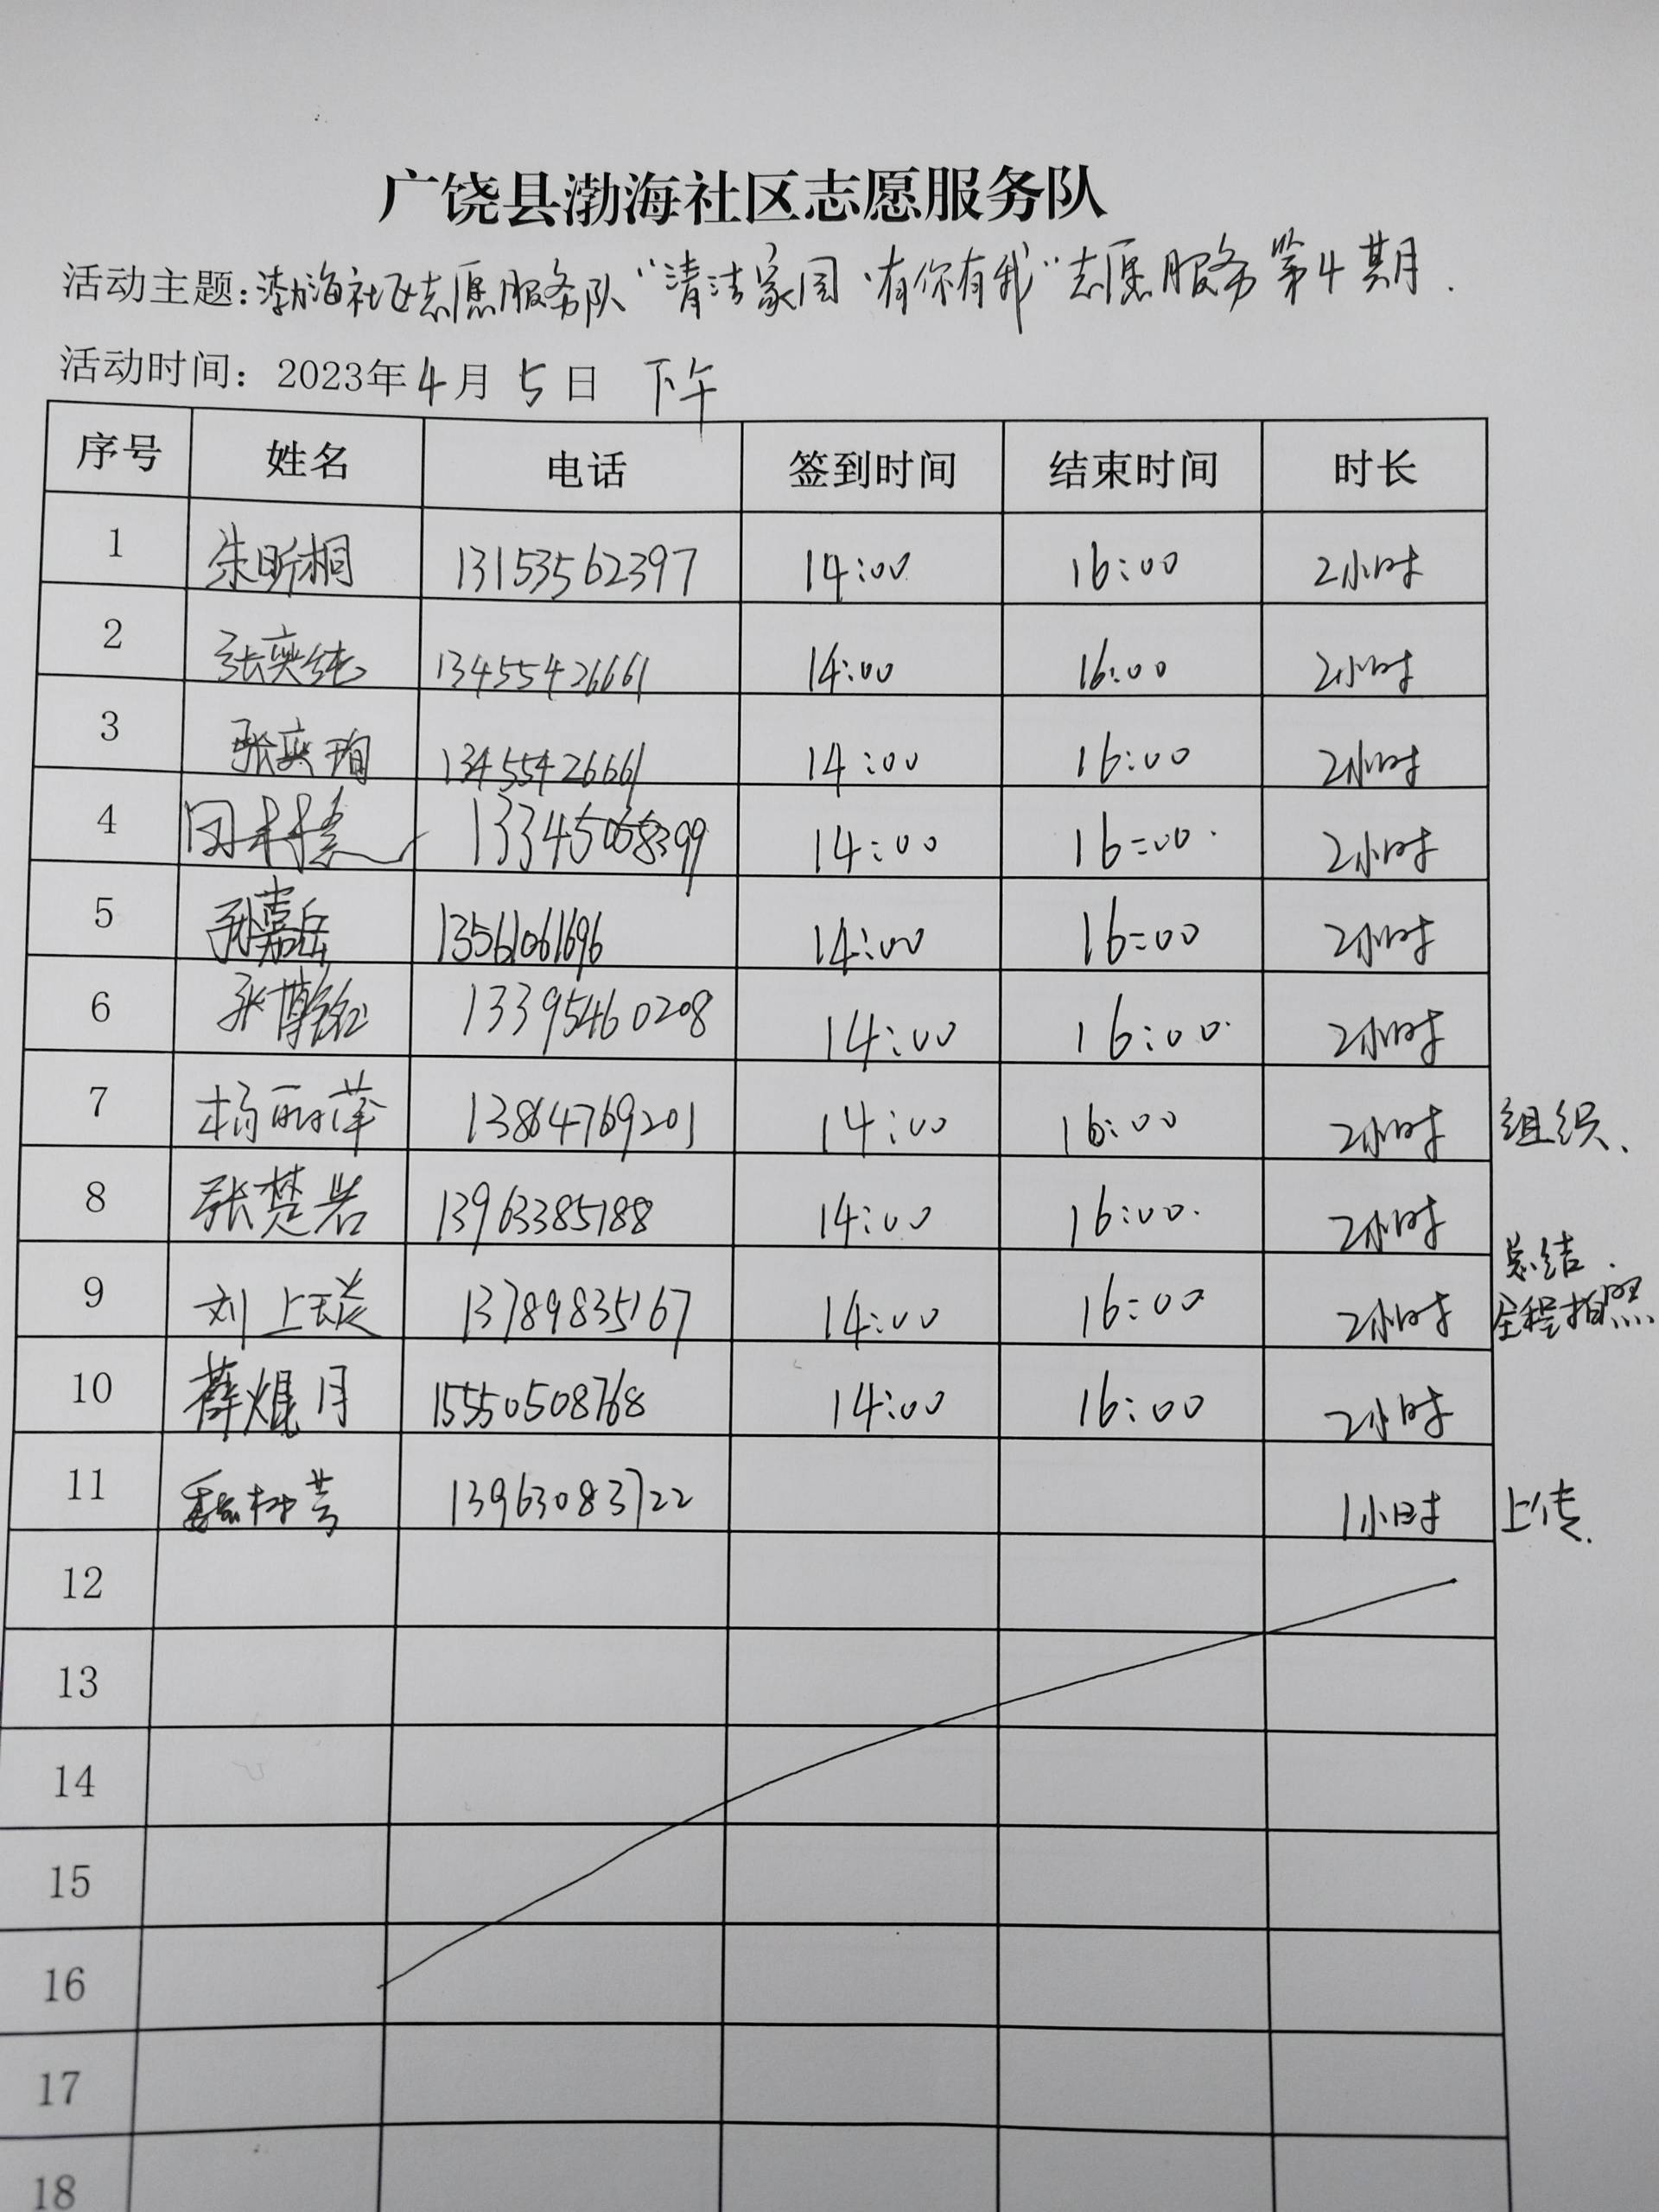 广饶县渤海社区志愿服务队
活动主题：渤海社区志愿服务队“清洁家园、有你有我”志愿服务第4期月.
活动时间：2023年4月5日 下午
序号 姓名 电话 签到时间 结束时间 时长
1 朱昕桐 13153562397 14:00 16:00 2小时
2 张奕纯 13455426661 14:00 16:00 2小时
3 张奕珣 13455426661 14:00 16:00 2小时
4 14:00 16:00 2小时
5 孙嘉岳 13561061696 14:00 16:00 2小时
6 张博铭 13395460208 14:00 16:00 2小时
7 杨丽萍 13864769201 14:00 16:00 2小时 组织、
8 张楚岩 13963385188 14:00 16:00 2小时
总结.
9 刘上琰 13789835167 14:00 16:00 2小时 全程拍照.
10 薛焜月 15550508768 14:00 16:00 2小时
11 13963083722 1小时 上传.
12
13
14
15
16
17
18